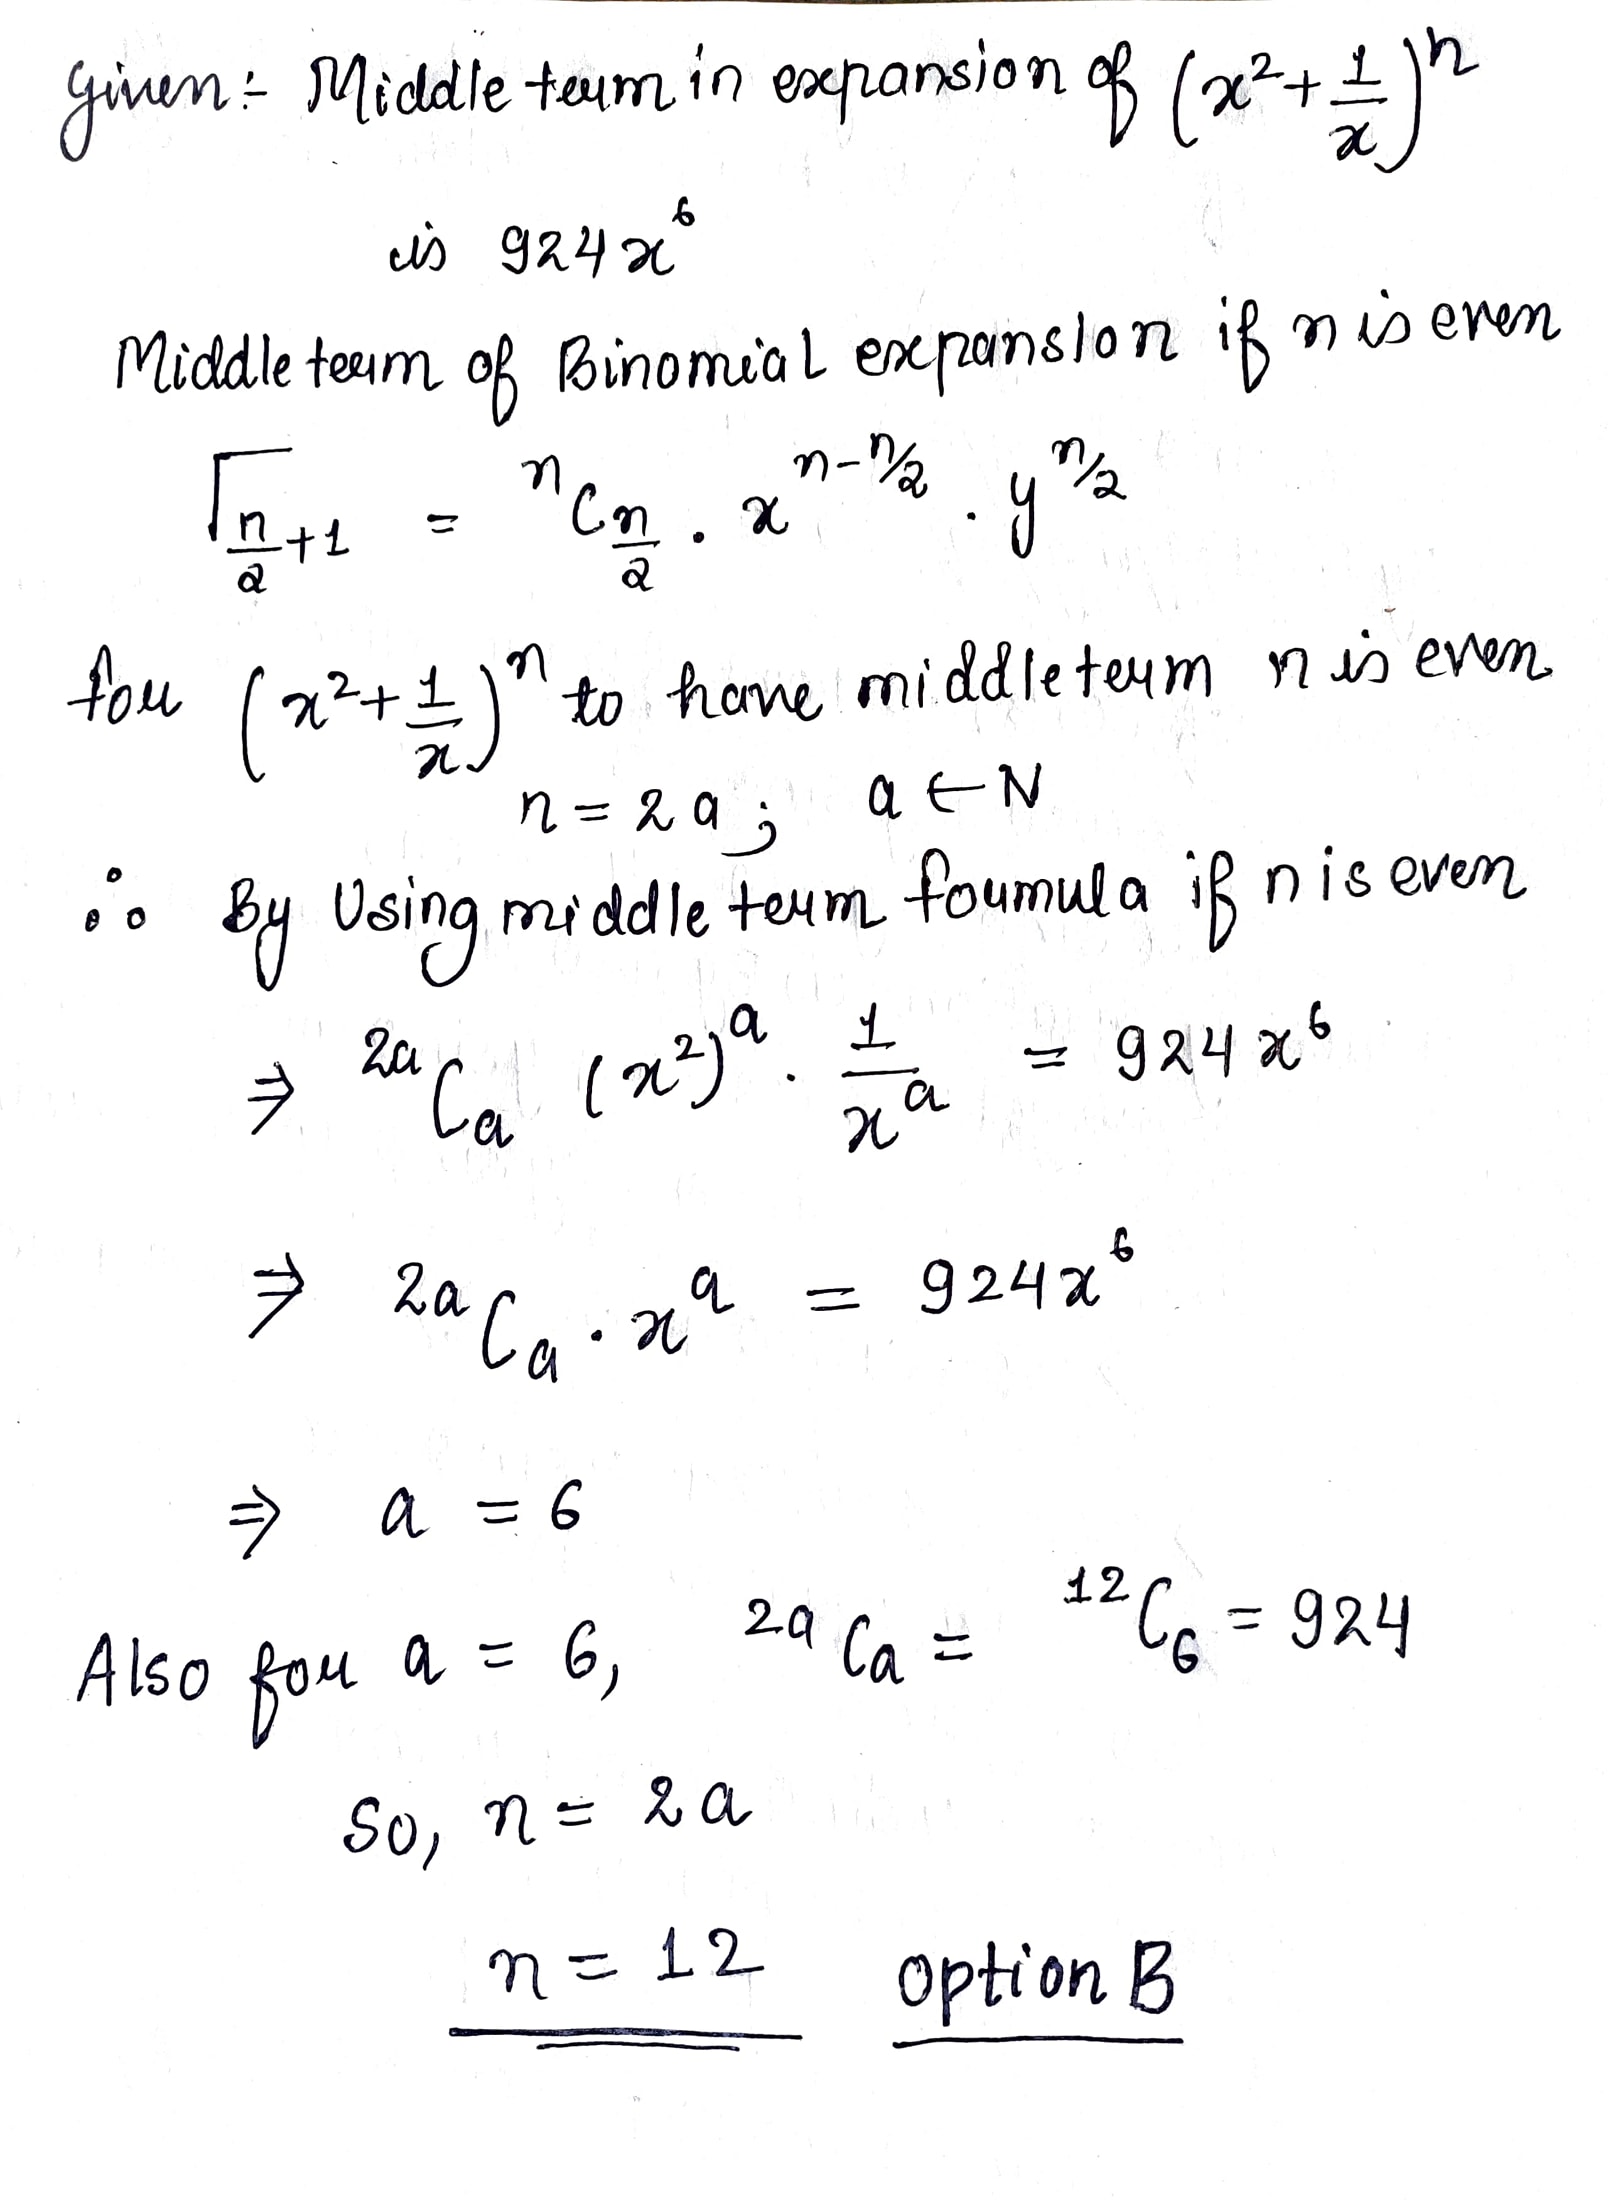 Given:- Middle term in expansion of (x² + 1/x)ⁿ
is 924x⁶
Middle term of Binomial expansion if n is even
T_(n/2 + 1) = ⁿC_(n/2) . x^(n-n/2) . y^(n/2)
for (x² + 1/x)ⁿ to have middle term n is even
n = 2a ; a ∈ N
∴ By Using middle term formula if n is even
⇒ ²ᵃCₐ (x²)ᵃ . 1/xᵃ = 924x⁶
⇒ ²ᵃCₐ . xᵃ = 924x⁶
⇒ a = 6
Also for a = 6, ²ᵃCₐ = ¹²C₆ = 924
So, n = 2a
n = 12 option B